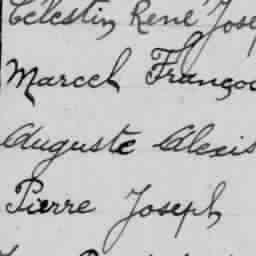 Célestin René Jose
Marcel Françoi
Auguste Alexis
Pierre Joseph